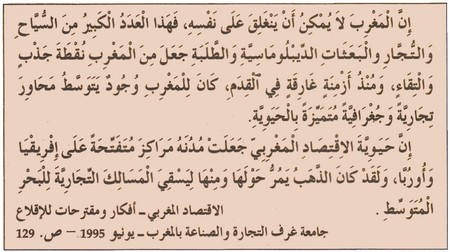 إِنَّ الْمَغْرِبَ لاَ يُمْكِنُ أَنْ يَنْغَلِقَ عَلَى نَفْسِهِ، فَهَذَا الْعَدَدُ الْكَبِيرُ مِنَ السُّيَّاحِ
وَالتُّجَّارِ وَالْبَعَثَاتِ الدِّيبْلُومَاسِيَّةِ وَالطَّلَبَةِ جَعَلَ مِنَ الْمَغْرِبِ نُقْطَةَ جَذْبٍ
وَالْتِقَاءٍ، وَمُنْذُ أَزْمِنَةٍ غَارِقَةٍ فِي الْقِدَمِ، كَانَ لِلْمَغْرِبِ وُجُودٌ يَتَوَسَّطُ مَحَاوِرَ
تِجَارِيَّةً وَجُغْرَافِيَّةً مُتَمَيِّزَةً بِالْحَيَوِيَّةِ.
إِنَّ حَيَوِيَّةَ الاقْتِصَادِ الْمَغْرِبِيِّ جَعَلَتْ مُدُنَهُ مَرَاكِزَ مُتَفَتِّحَةً عَلَى إِفْرِيقْيَا
وَأُورُبَّا، وَلَقَدْ كَانَ الذَّهَبُ يَمُرُّ حَوْلَهَا وَمِنْهَا لِيَسْقِيَ الْمَسَالِكَ التِّجَارِيَّةَ لِلْبَحْرِ
الْمُتَوَسِّطِ .
الاقتصاد المغربي ـ أفكار ومقترحات للإقلاع
جامعة غرف التجارة والصناعة بالمغرب ـ يونيو 1995 ـ ص. 129